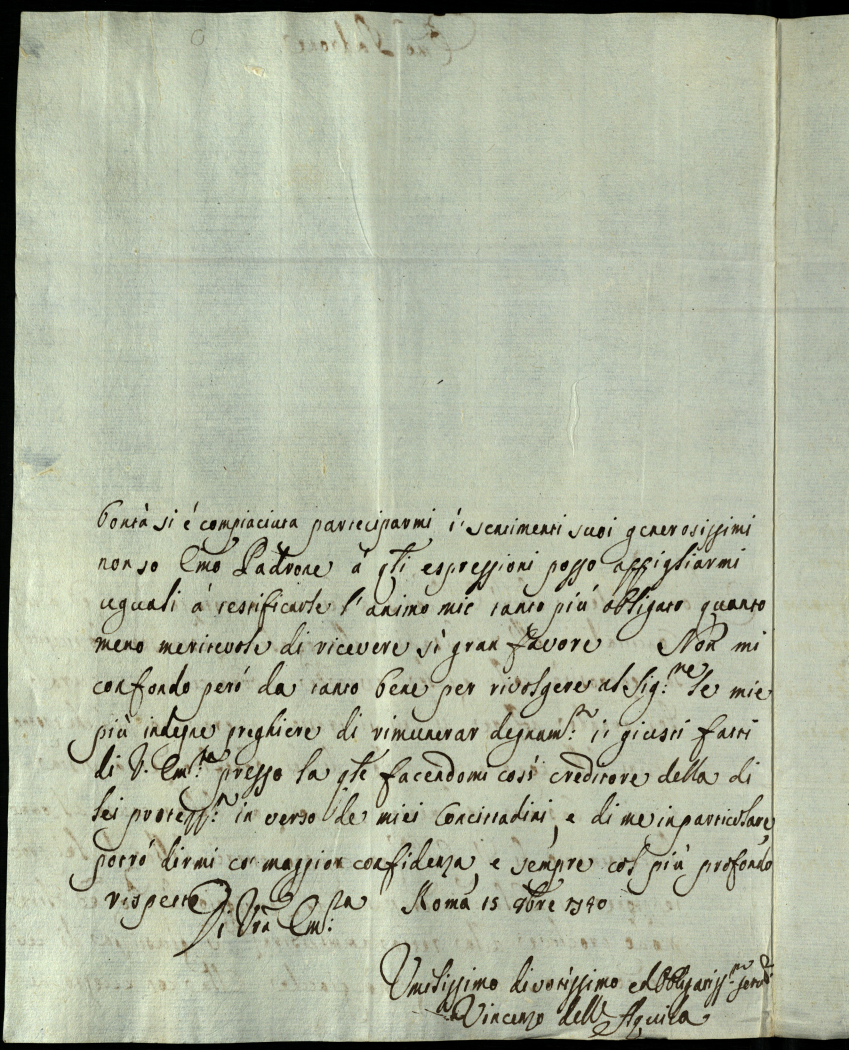 bontà si é compiaciuta parteciparmi i' sentimenti suoi generosissimi
non so Emo Padrone á qti espressioni posso appigliarmi
uguali á testificarle l'animo mio tanto più obbligato quanto
meno meritevole di ricevere sì gran favore Non mi
confondo peró da tanto bene per rivolgere al Sig:re le mie
più indegne preghiere di rimunerar degnamte: i giusti fatti
di V. Em:za presso la qle facendomi così creditore della di
lei protezze: in verso de miei Concittadini, e di me in particolare,
potró dirmi co' maggior confidenza, e sempre col più profondo
rispetto
Di Vra Em:za Roma 15 9bre 1740
Umilissimo divotissimo ed Obbligatiss:mo
Vincenzo dell'Aquila